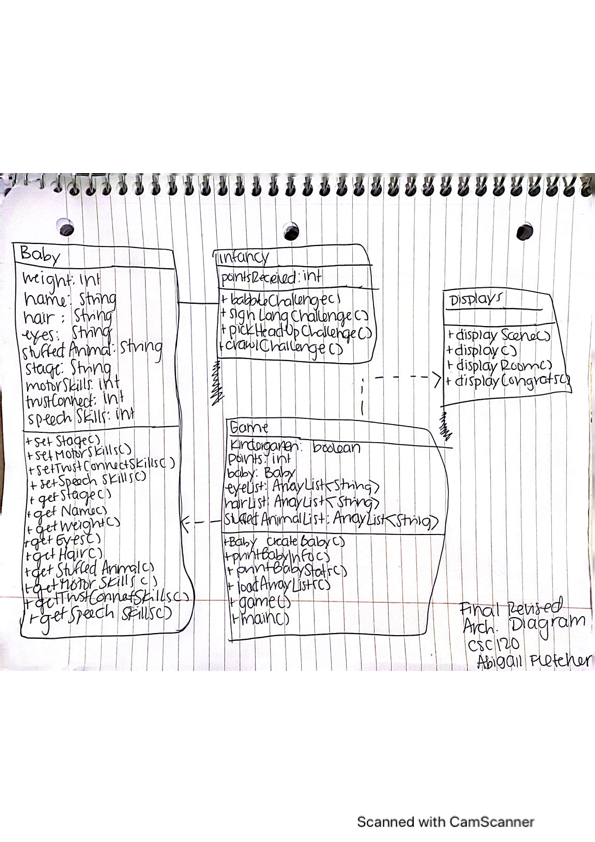 Baby
weight: int
name: String
hair : String
eyes: String
stuffed Animal: String
stage: String
motorSkills: int
trustConnect: int
speech Skills: int
+ set Stage()
+ set MotorSkills()
+ setTrustConnectSkills()
+ set Speech Skills()
+ get Stage()
+ get Name()
+ get Weight()
+ get Eyes()
+ get Hair()
+ get Stuffed Animal()
+ get Motor Skills()
+ getTrustConnectSkills()
+ get Speech Skills()
infancy
pointsReceived: int
+ babbleChallenge()
+ sign Lang Challenge()
+ pickHeadUpChallenge()
+ crawlChallenge()
Displays
+ display Scene()
+ display()
+ display Room()
+ displayCongrats()
Game
Kindergarten: boolean
points: int
baby: Baby
eyeList: ArrayList<String>
hairList: ArrayList<String>
stuffedAnimalList: ArrayList<String>
+Baby createBaby()
+printBabyInfo()
+ printBabyStats()
+ loadArrayList()
+ game()
+ main()
Final Revised
Arch. Diagram
CSC 120
Abigail Fletcher
Scanned with CamScanner